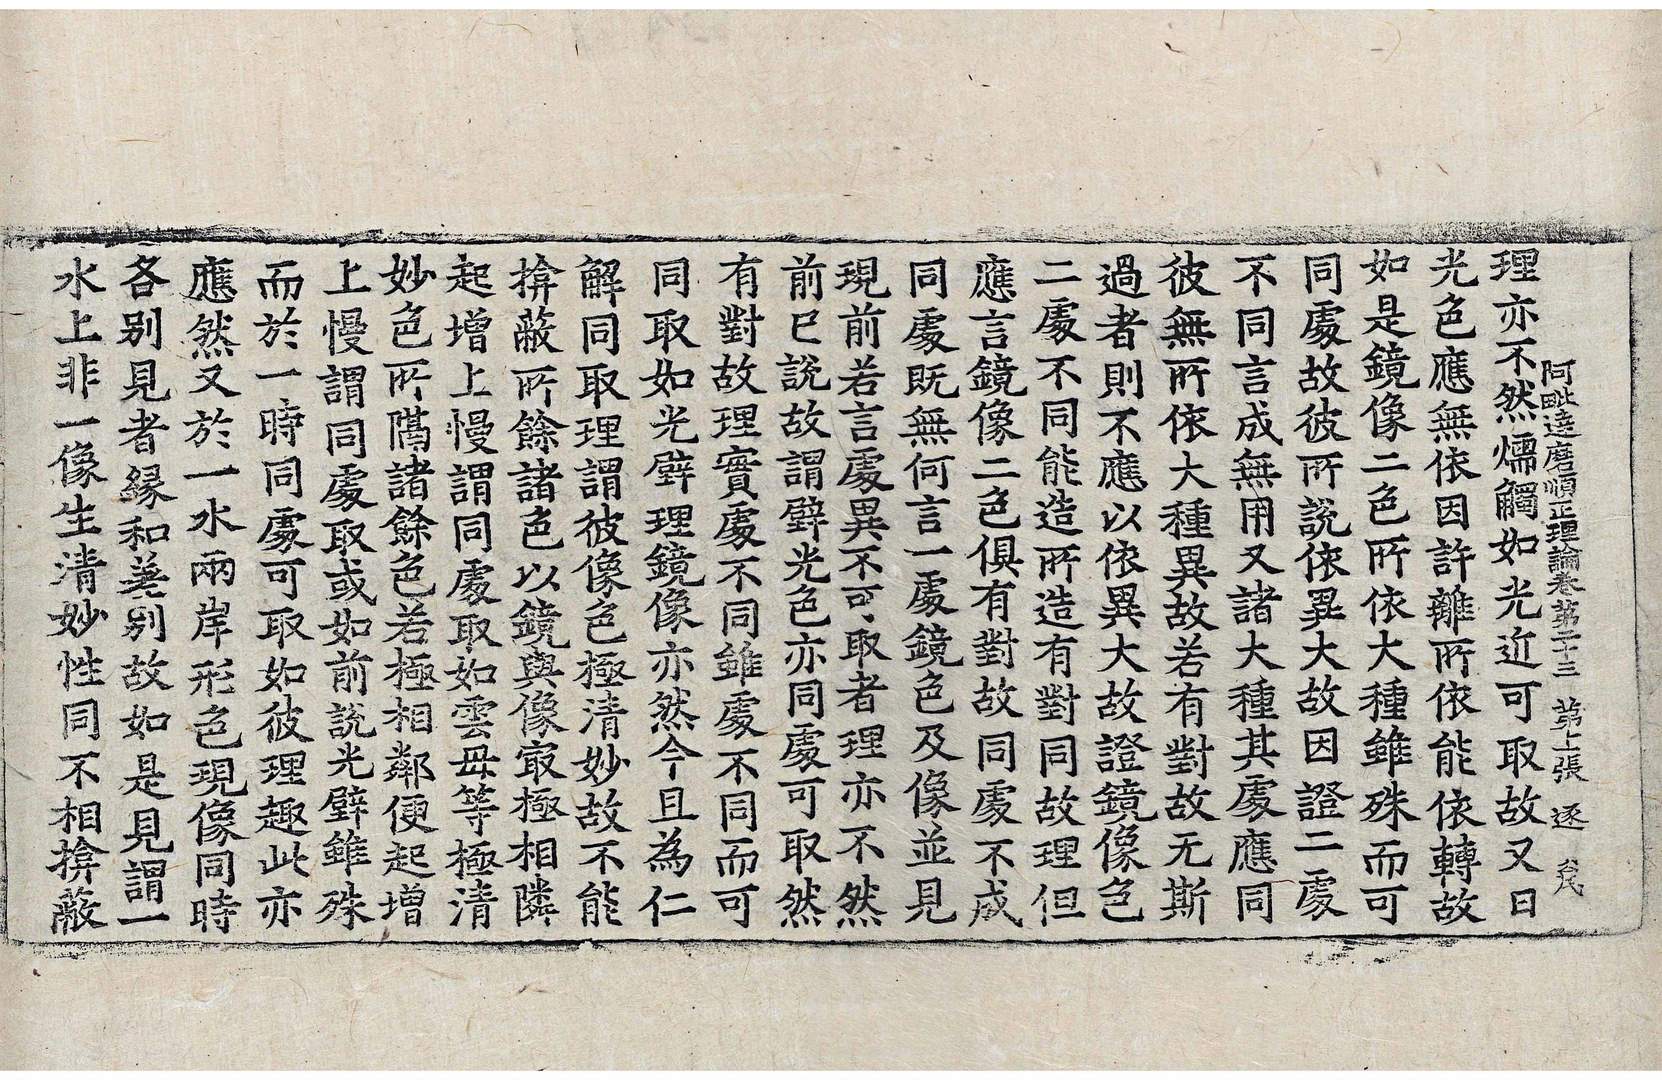 阿毗達磨順正理論卷第二十三 第七張 逐
理亦不然煗觸如光近可取故又日
光色應無依因許離所依能依轉故
如是鏡像二色所依大種雖殊而可
同處故彼所說依異大故因證二處
不同言成無用又諸大種其處應同
彼無所依大種異故若有對故无斯
過者則不應以依異大故證鏡像色
二處不同能造所造有對同故理但
應言鏡像二色俱有對故同處不成
同處既無何言一處鏡色及像並見
現前若言處異不可取者理亦不然
前已說故謂壁光色亦同處可取然
有對故理實處不同雖處不同而可
同取如光壁理鏡像亦然今且為仁
解同取理謂彼像色極清妙故不能
揜蔽所餘諸色以鏡與像㝡極相隣
起增上慢謂同處取如雲母等極清
妙色所隔諸餘色若極相鄰便起增
上慢謂同處取或如前說光壁雖殊
而於一時同處可取如彼理趣此亦
應然又於一水兩岸形色現像同時
各別見者緣和差別故如是見謂一
水上非一像生清妙性同不相揜蔽